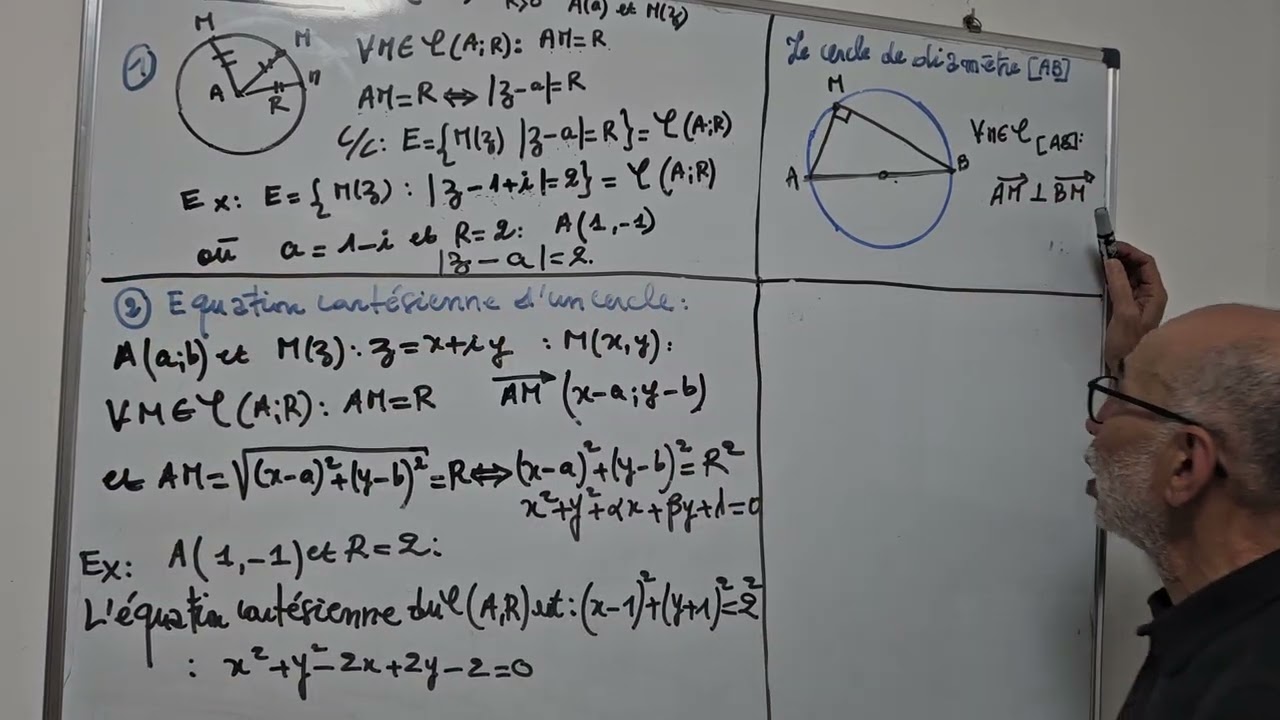 R>0 A(a) et M(z)
①
M
M
M
A
R
∀M∈C(A;R): AM=R
AM=R ⇔ |z-a|=R
C/C: E={M(z) |z-a|=R}=C(A;R)
Ex: E={M(z): |z-1+i|=2}=C(A;R)
où a=1-i et R=2: A(1,-1)
|z-a|=2.
② Equation cartésienne d'un cercle:
A(a;b) et M(z): z=x+iy : M(x,y):
∀M∈C(A;R): AM=R AM→(x-a;y-b)
et AM=√((x-a)²+(y-b)²)=R⇔(x-a)²+(y-b)²=R²
x²+y²+αx+βy+λ=0
Ex: A(1,-1) et R=2:
L'équation cartésienne du C(A,R) est: (x-1)²+(y+1)²=2²
: x²+y²-2x+2y-2=0
Le cercle de diamètre [AB]
M
A
B
∀M∈C[AB]:
AM→ ⊥ BM→